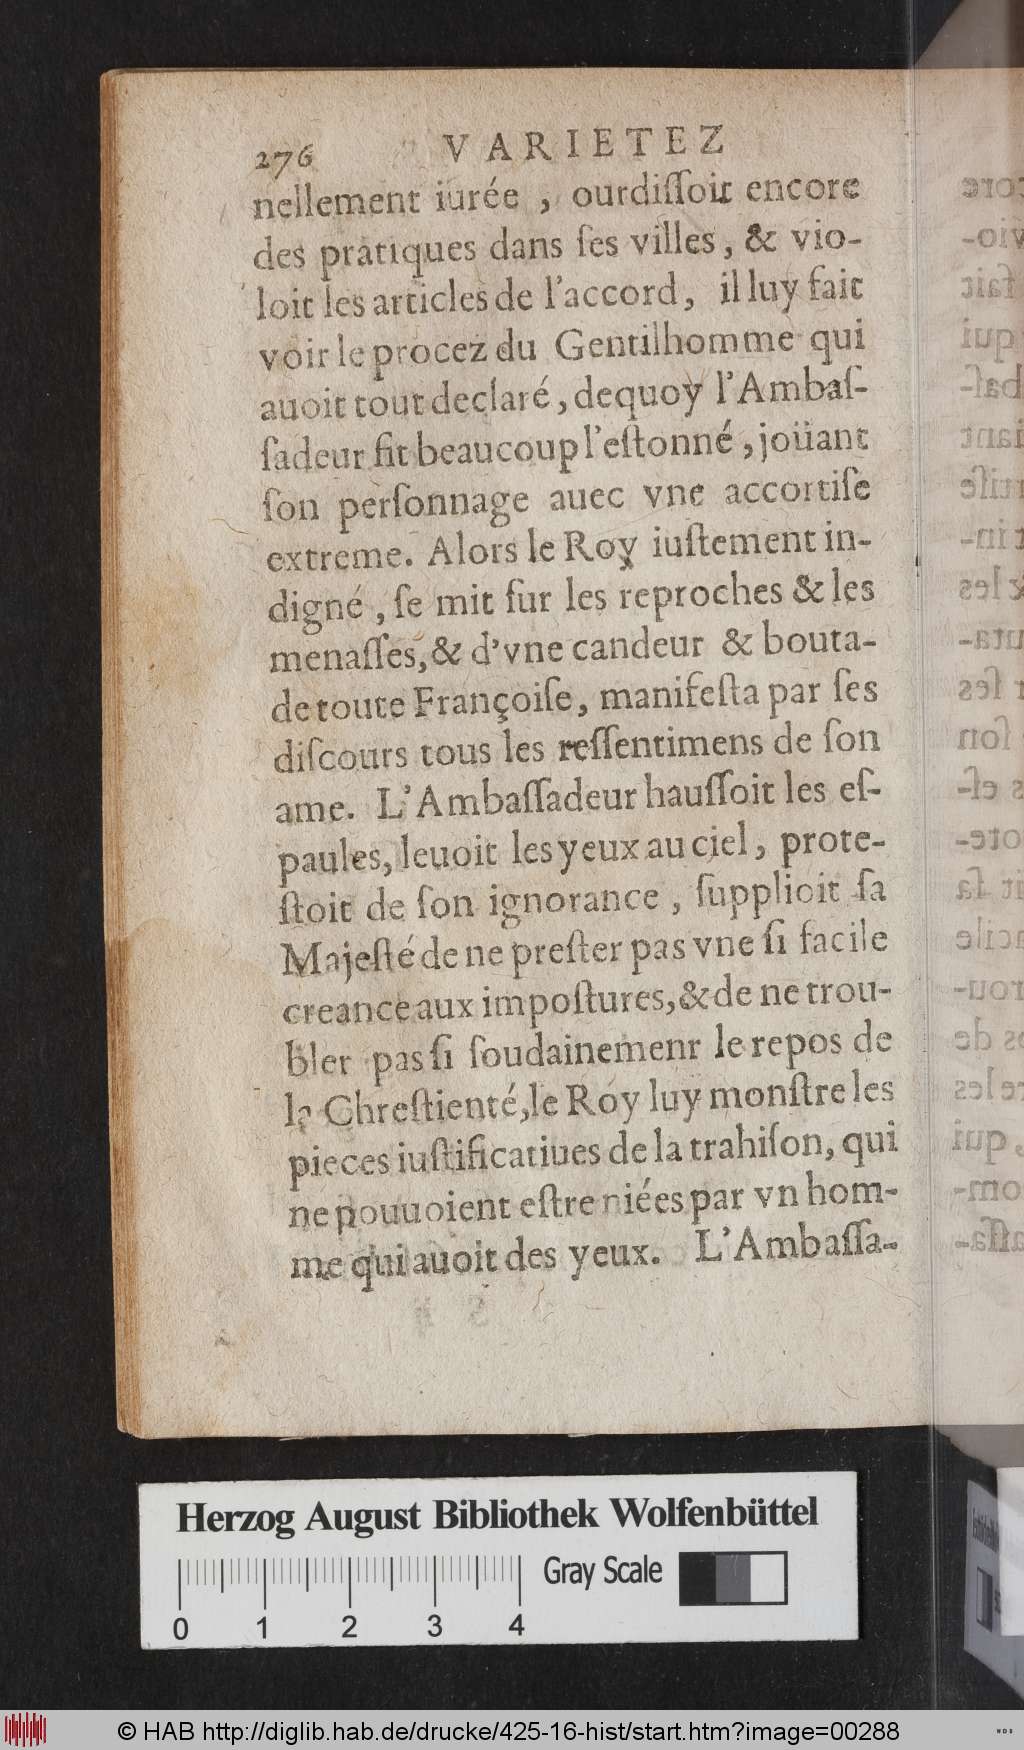 276 VARIETEZ
nellement iurée , ourdiſſoit encore
des pratiques dans ſes villes, & vio-
loit les articles de l'accord, il luy fait
voir le procez du Gentilhomme qui
auoit tout declaré, dequoy l'Ambaſ-
ſadeur fit beaucoup l'eſtonné, joüant
ſon perſonnage auec vne accortiſe
extreme. Alors le Roy iuſtement in-
digné, ſe mit ſur les reproches & les
menaſſes, & d'vne candeur & bouta-
de toute Françoiſe, manifeſta par ſes
diſcours tous les reſſentimens de ſon
ame. L'Ambaſſadeur hauſſoit les eſ-
paules, leuoit les yeux au ciel, prote-
ſtoit de ſon ignorance, ſupplioit ſa
Majeſté de ne preſter pas vne ſi facile
creance aux impoſtures, & de ne trou-
bler pas ſi ſoudainemenr le repos de
la Chreſtienté, le Roy luy monſtre les
pieces iuſtificatiues de la trahiſon, qui
ne pouuoient eſtre niées par vn hom-
me qui auoit des yeux. L'Ambaſſa-
Herzog August Bibliothek Wolfenbüttel
Gray Scale
0 1 2 3 4
© HAB http://diglib.hab.de/drucke/425-16-hist/start.htm?image=00288